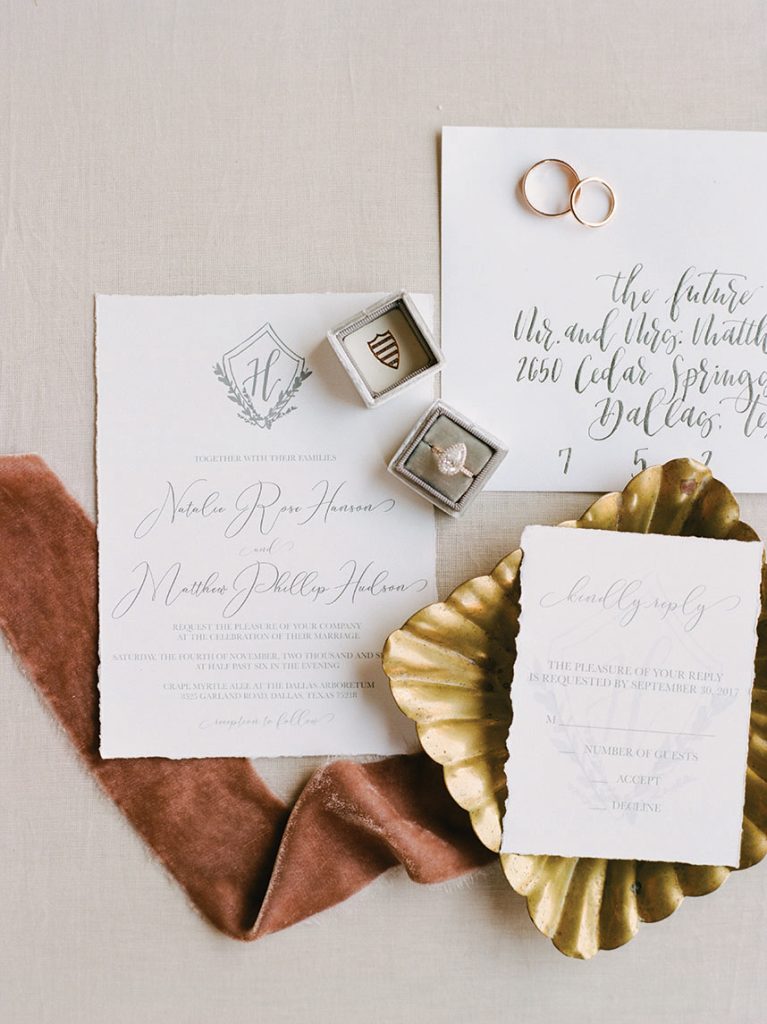 H
TOGETHER WITH THEIR FAMILIES
Natalie Rose Hanson
and
Matthew Phillip Hudson
REQUEST THE PLEASURE OF YOUR COMPANY
AT THE CELEBRATION OF THEIR MARRIAGE
SATURDAY, THE FOURTH OF NOVEMBER, TWO THOUSAND AND S
AT HALF PAST SIX IN THE EVENING
CRAPE MYRTLE ALEE AT THE DALLAS ARBORETUM
3525 GARLAND ROAD, DALLAS, TEXAS 75218
reception to follow
the future
Mr. and Mrs. Matth
2650 Cedar Springs
Dallas, Te
7 5 2
kindly reply
THE PLEASURE OF YOUR REPLY
IS REQUESTED BY SEPTEMBER 30, 2017
M
NUMBER OF GUESTS
ACCEPT
DECLINE